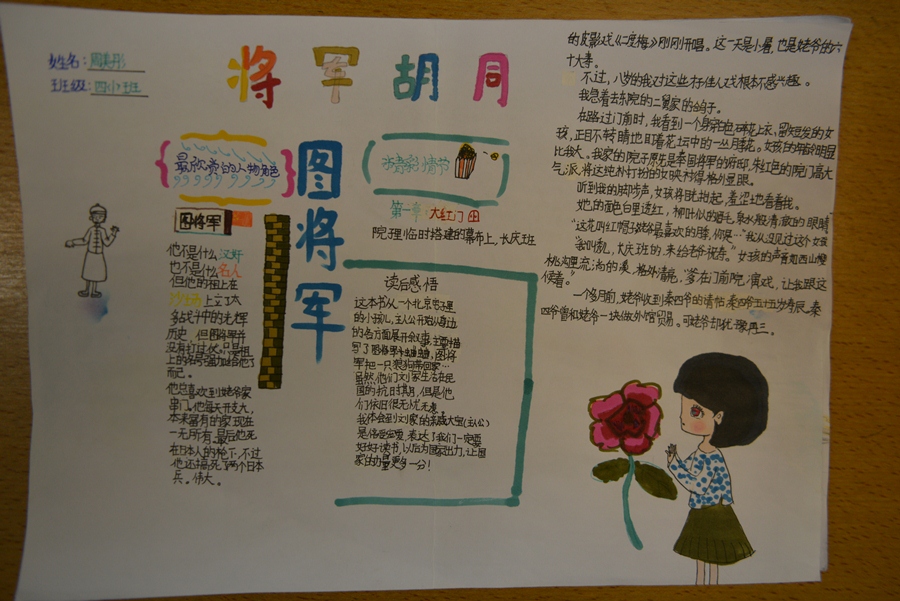 姓名:周美彤
班级:四小7班
将军胡同
最欣赏的人物角色
图将军
他不是什么汉奸
也不是什么名人
但他的祖上在
沙场上立了太
多战斗中的光辉
历史,但图将军并
没有打过仗,只是祖
上的名号强加给他了
而已。
他总喜欢到姥爷家
串门。他每天开支大,
本来富有的家现在
一无所有,最后他死
在日本人的枪下,不过
他还搞死了两个日本
兵。伟大。
图将军
精彩情节
第一章 大红门
院里临时搭建的幕布上,长庆班
的皮影戏《二度梅》刚刚开唱。这一天是小暑,也是姥爷的六
十大寿。
不过,八岁的我对这些才子佳人戏根本不感兴趣。
我急着去东院的二舅家的鸽子。
在路过门前时,我看到一个身穿白色碎花上衣,留短发的女
孩,正目不转睛地盯着花坛中的一丛月季花。女孩的年龄明显
比我大。我家的院子原先是秦国将军的府邸,朱红色的院门高大
气派,将这纯朴打扮的女映衬得格外显眼。
听到我的脚步声,女孩将眼抬起,羞涩地看着我。
她的面色白里透红,柳叶似的眉毛,泉水般清澈的眼睛
"这花叫红帽子,姥爷最喜欢的。
女孩的声音如西山樱
桃沟里流淌的溪,格外清亮,爹在门前院演戏,让我跟这
候着。"
一个月前,姥爷收到秦四爷的请帖,秦四爷五十五岁寿辰,秦
四爷曾和姥爷一块做外馆贸易。可姥爷却犹豫再三。
读后感悟
这本书从一个北京院子里
的小孩儿,主人公开始从身边
的各方面展开叙事,主要描
写了图将军
军把一只獒狗带回家…
虽然他们刘家生活在民
国的抗日时期,但是他
们依旧很无忧无虑。
我体会到刘家的亲戚大宝(主人公)
是倍受宠爱,表达了我们一定要
好好读书,以后为国家出力,让国
家的力量更多一分!